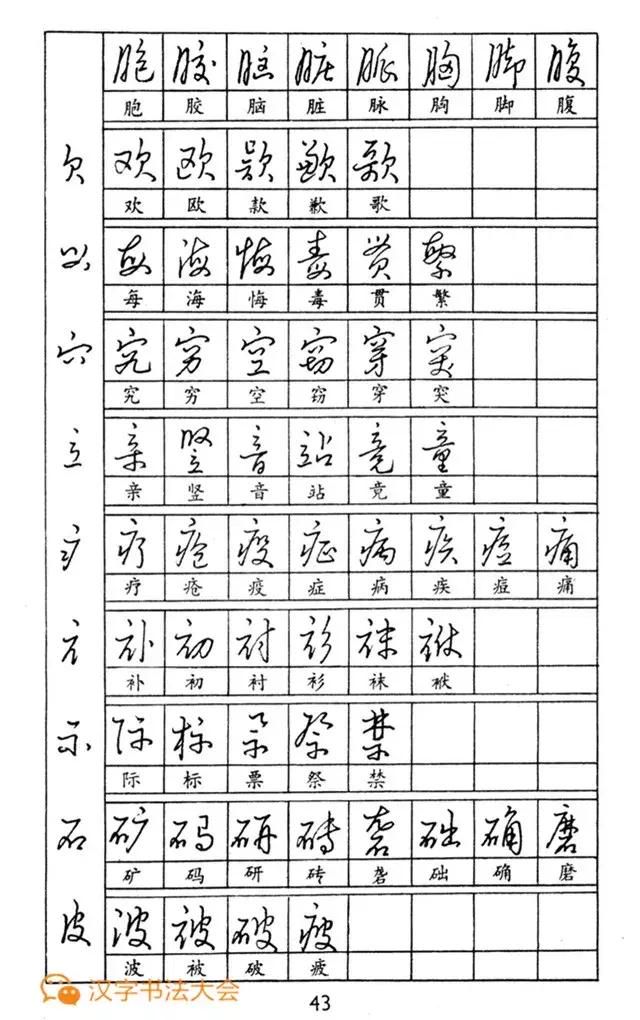 胞 胶 脑 脏 脉 胸 脚 腹
胞 胶 脑 脏 脉 胸 脚 腹
欠 欢 欧 款 歉 歌
欢 欧 款 歉 歌
每 海 悔 毒 贯 繁
每 海 悔 毒 贯 繁
穴 究 穷 空 窃 穿 突
究 穷 空 窃 穿 突
立 亲 竖 音 站 竞 童
亲 竖 音 站 竞 童
疒 疗 疮 疫 症 病 疾 痘 痛
疗 疮 疫 症 病 疾 痘 痛
衤 补 初 衬 衫 袜 袱
补 初 衬 衫 袜 袱
示 际 标 票 祭 禁
际 标 票 祭 禁
石 矿 码 研 砖 砻 础 确 磨
矿 码 研 砖 砻 础 确 磨
皮 波 被 破 疲
波 被 破 疲
汉字书法大会
43